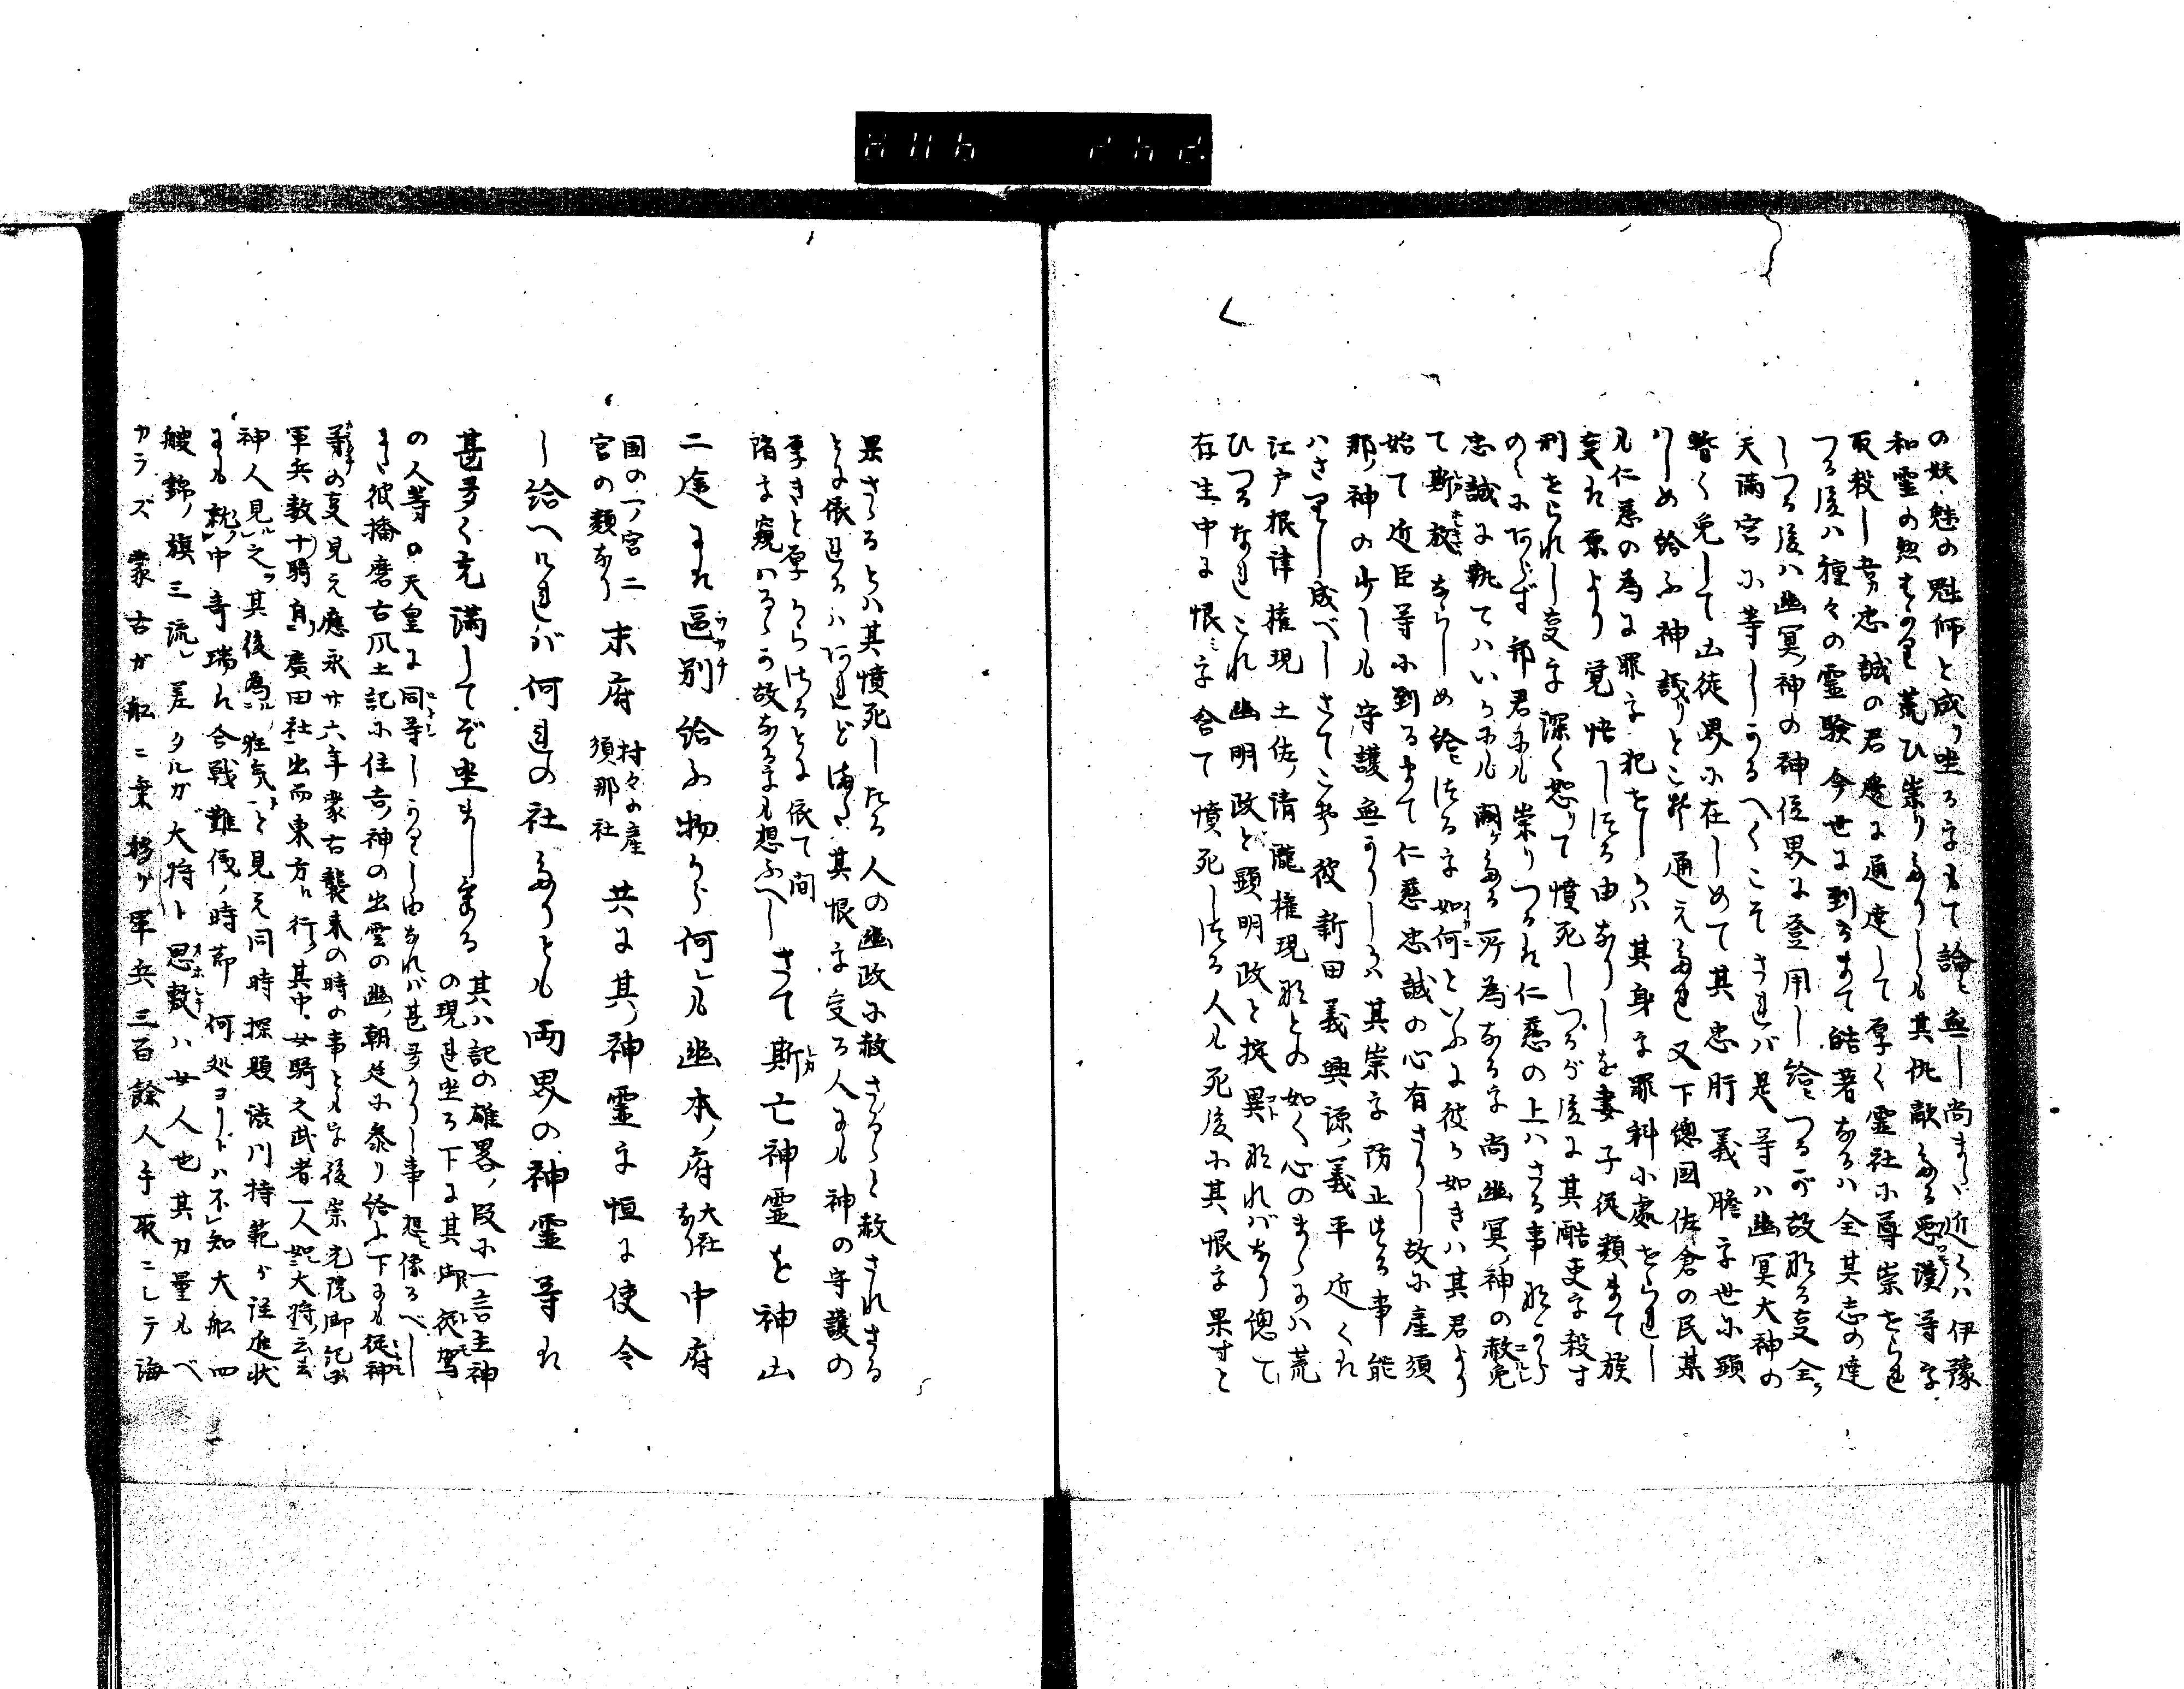 の妖魅の魁师と成り坐るをもて論ひ無し尚まゝ近くハ伊豫
和霊の怒まの里荒ひ祟りありしも其仇敵ある悪漢等を
取殺し忠誠の君邊に通達して厚く霊社に尊崇せられ
つる後ハ種々の霊験今世に到るまて皓著なるハ全其志の達
しつる後ハ幽冥神の神位界に登用し給ひつるが故なる事全ク
天満宮に等しかるへくこそされバ是等ハ幽冥大神の
暫く免して凶徒界に在しめて其忠肝義膽を世に顕
りしめ給ふ神議りとこそ通えたれ又下總国佐倉の民某
も仁慈の為に罪を犯せしかハ其身を罪科に處せられし
事ハ素より覚悟しける由なりしを妻子従類まて族
刑せられし事を深く怒りて憤死しつるが後に其酷吏を殺す
のみにあらず郡君にも祟りつるハ仁慈の上ハさる事ながら
忠誠に執てハいかにも闕たる所為なるを尚幽冥神の赦免
て斯赦ならしめ給ひけるを如何といふに彼か如きハ其君より
始て近臣等に到るまて仁慈忠誠の心有さりし故に産須
那神の少しも守護無かりしかハ其祟を防止する事能
ハさりし成べしさてこそ彼新田義興源ノ義平近くハ
江戸根津権現土佐ノ清瀧権現などの如く心のまゝにハ荒
ひつるなれこれ幽明政と顕明政と掟異なれバなり總て
存生中に恨ミを含て憤死しける人も死後に其恨を果すと
果さゝるとハ其憤死したる人の幽政に赦さるゝと赦されさる
とに依るハあれど海に其恨を受る人にも神の守護の
厚きと厚からさるとに依て間
隋を窺ハるゝか故なるをも想ふへしさて斯亡神霊を神山
二途にハ區別給ふ物から何レも幽本ノ府大社なり中府
国の一ノ宮二宮の類なり末府村々の産須那社共に其ノ神霊を恒に使令
し給へれバ何れの社なりとも両界の神霊等ハ
甚多く充満してぞ坐ましまる其ハ記の雄畧ノ段に一言主神の現れ坐る下に其御従駕
の人等の天皇に同等しかりし由なれバ甚多かりし事想ヒ像るべし
また彼播磨古風土記に住吉ノ神の出雲の幽ノ朝廷に参り給ふ下にも従神
の事見え應永廿六年蒙古襲来の時の事ともを後崇光院御記に
軍兵数十騎自リ廣田社出而東方ニ行ク其中ニ女騎之武者一人如シ大将ノ云云
神人見ル之ヲ其後為ル狂気トと見え同時探題渋川持範ゟ注進状
にも就中奇瑞ハ合戦難儀ノ時節何処ヨリトハ不知大舩四
艘錦ノ旗三流レ差タルガ大将ト思敷ハ女人也其力量ルベ
カラズ蒙古ガ舩ニ乗移リ軍兵三百餘人手取ニシテ海